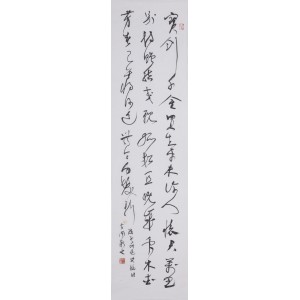 寶劍千金買生平未許人懷君萬里
別持贈結交親孤松宜晚歲眾木愛
芳春已矣將何道無令白髮新